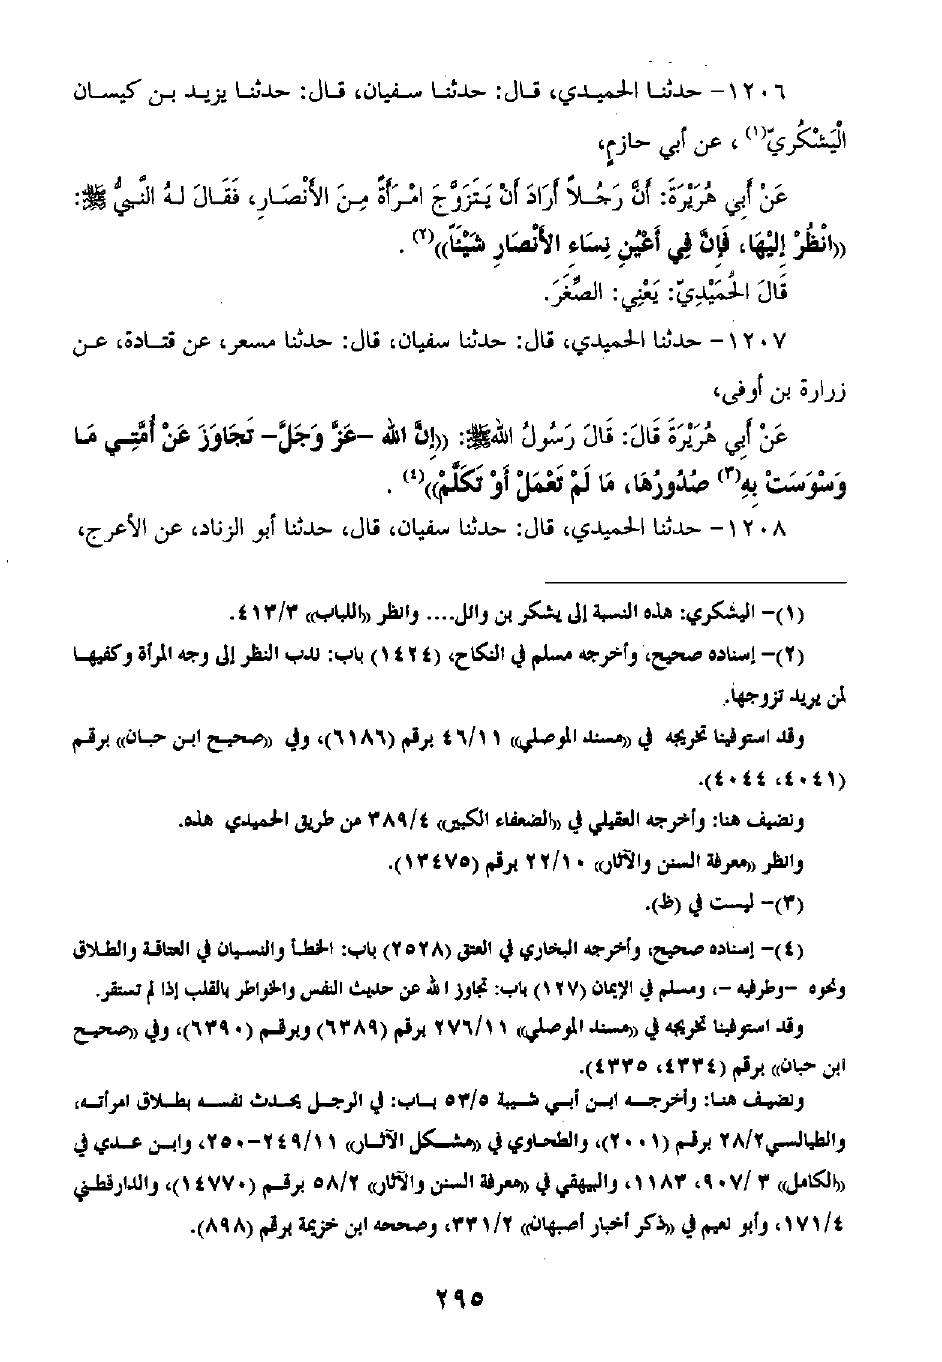 ١٢٠٦- حدثنا الحميدي، قال: حدثنا سفيان، قال: حدثنا يزيد بن كيسان
الْيَشْكُرِيّ(١)، عن أبي حازمٍ،
عَنْ أَبِي هُرَيْرَةَ: أَنَّ رَجُلاً أَرَادَ أَنْ يَتَزَوَّجَ امْرَأَةً مِنَ الأَنْصَارِ، فَقَالَ لَهُ النَّبِيُّ ﷺ:
((انْظُرْ إِلَيْهَا، فَإِنَّ فِي أَعْيُنِ نِسَاءِ الأَنْصَارِ شَيْئاً))(٢).
قَالَ الْحُمَيْدِيّ: يَعْنِي: الصِّغَرَ.
١٢٠٧- حدثنا الحميدي، قال: حدثنا سفيان، قال: حدثنا مسعر، عن قتادة، عن
زرارة بن أوفى،
عَنْ أَبِي هُرَيْرَةَ قَالَ: قَالَ رَسُولُ اللهِ ﷺ: ((إِنَّ الله -عَزَّ وَجَلَّ- تَجَاوَزَ عَنْ أُمَّتِي مَا
وَسْوَسَتْ بِهِ(٣) صُدُورُهَا، مَا لَمْ تَعْمَلْ أَوْ تَكَلَّمْ))(٤).
١٢٠٨- حدثنا الحميدي، قال: حدثنا سفيان، قال، حدثنا أبو الزناد، عن الأعرج،
(١)- اليشكري: هذه النسبة إلى يشكر بن وائل.... وانظر ((اللباب)) ٤١٣/٣.
(٢)- إسناده صحيح، وأخرجه مسلم في النكاح، (١٤٢٤) باب: ندب النظر إلى وجه المرأة وكفيها
لمن يريد تزوجها.
وقد استوفينا تخريجه في ((مسند الموصلي)) ٤٦/١١ برقم (٦١٨٦)، وفي ((صحيح ابن حبان)) برقم
(٤٠٤١، ٤٠٤٤).
ونضيف هنا: وأخرجه العقيلي في ((الضعفاء الكبير)) ٣٨٩/٤ من طريق الحميدي هذه.
وانظر ((معرفة السنن والآثار)) ٢٢/١٠ برقم (١٣٤٧٥).
(٣)- ليست في (ظ).
(٤)- إسناده صحيح، وأخرجه البخاري في العتق (٢٥٢٨) باب: الخطأ والنسيان في العتاقة والطلاق
ونحوه -وطرفيه -، ومسلم في الإيمان (١٢٧) باب: تجاوز الله عن حديث النفس والخواطر بالقلب إذا لم تستقر.
وقد استوفينا تخريجه في ((مسند الموصلي)) ٢٧٦/١١ برقم (٦٣٨٩) وبرقم (٦٣٩٠)، وفي ((صحيح
ابن حبان)) برقم (٤٣٣٤، ٤٣٣٥).
ونضيف هنا: وأخرجه ابن أبي شيبة ٥٣/٥ باب: في الرجل يحدث نفسه بطلاق امرأته،
والطيالسي٢٨/٢ برقم (٢٠٠١)، والطحاوي في ((مشكل الآثار)) ٢٤٩/١١-٢٥٠، وابن عدي في
((الكامل)) ٣ /٩٠٧، ١١٨٣، والبيهقي في ((معرفة السنن والآثار)) ٥٨/٢ برقم (١٤٧٧٠)، والدارقطني
١٧١/٤، وأبو نعيم في ((ذكر أخبار أصبهان)) ٣٣١/٢، وصححه ابن خزيمة برقم (٨٩٨).
٢٩٥